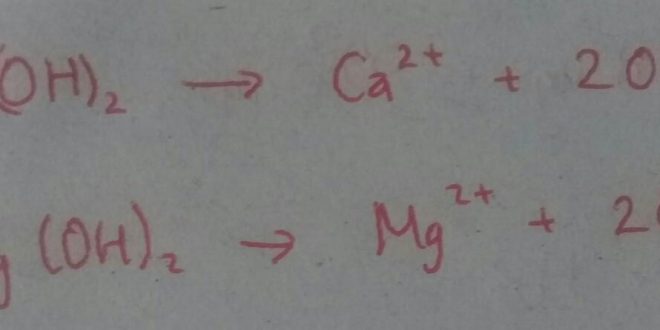 (OH)₂ → Ca²⁺ + 2O
(OH)₂ → Mg²⁺ + 2